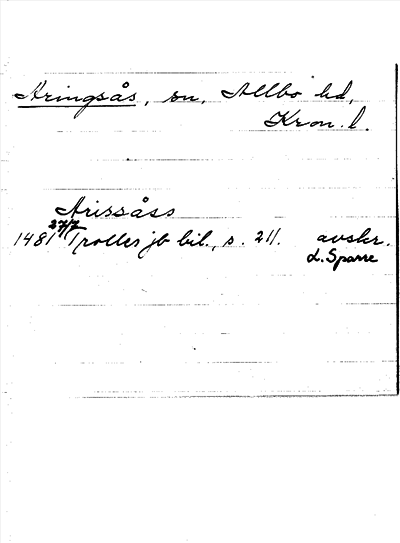 Aringsås, sn, Allbo hd,
Kron. l.
Arissåss
1481 27/7 Trolles jb bil., s. 211. avskr.
L. Sparre